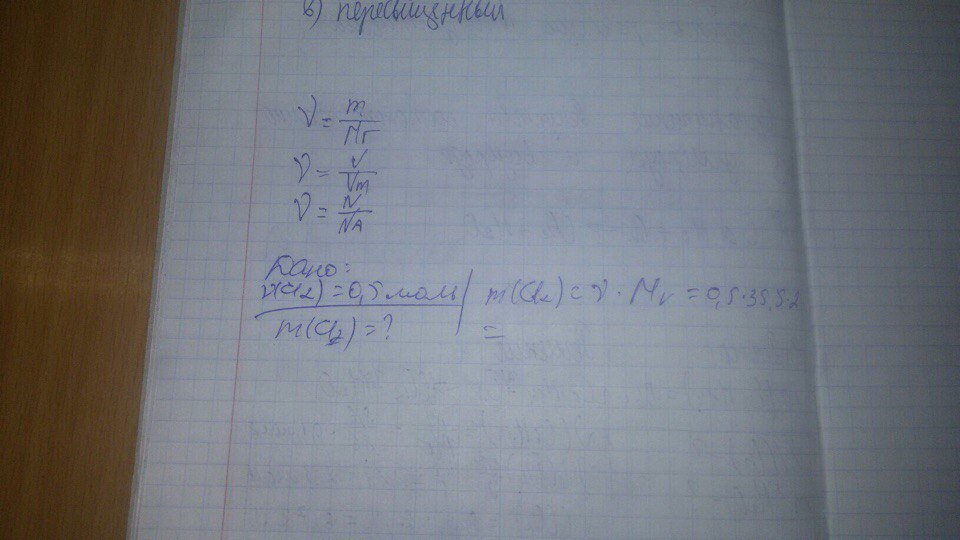 в) пересыщенный
ν = m / Mr
ν = V / Vm
ν = N / NA
Дано:
ν(Cl2) = 0,5 моль
m(Cl2) = ν · Mr = 0,5·35,5·2
m(Cl2) = ?
=